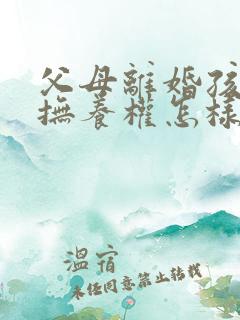 父母離婚孩
撫養權怎樣
溫宿
未经同意禁止转载